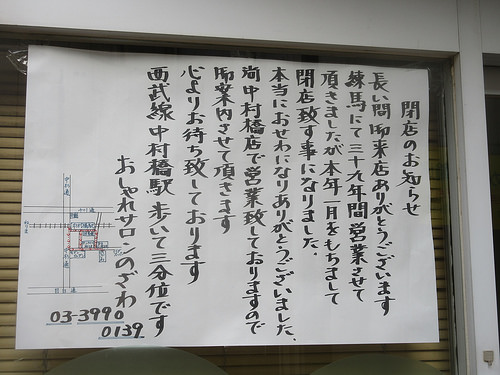 閉店のお知らせ
長い間御来店ありがとうございます
練馬にて三十九年間営業させて
頂きましたが本年一月をもちまして
閉店致す事になりました。
本当におせわになりありがとうございました。
尚中村橋店で営業致しておりますので
御案内させて頂きます
心よりお待ち致しております
西武線中村橋駅歩いて三分位です
おしゃれサロンのざわ
03-3990
0139